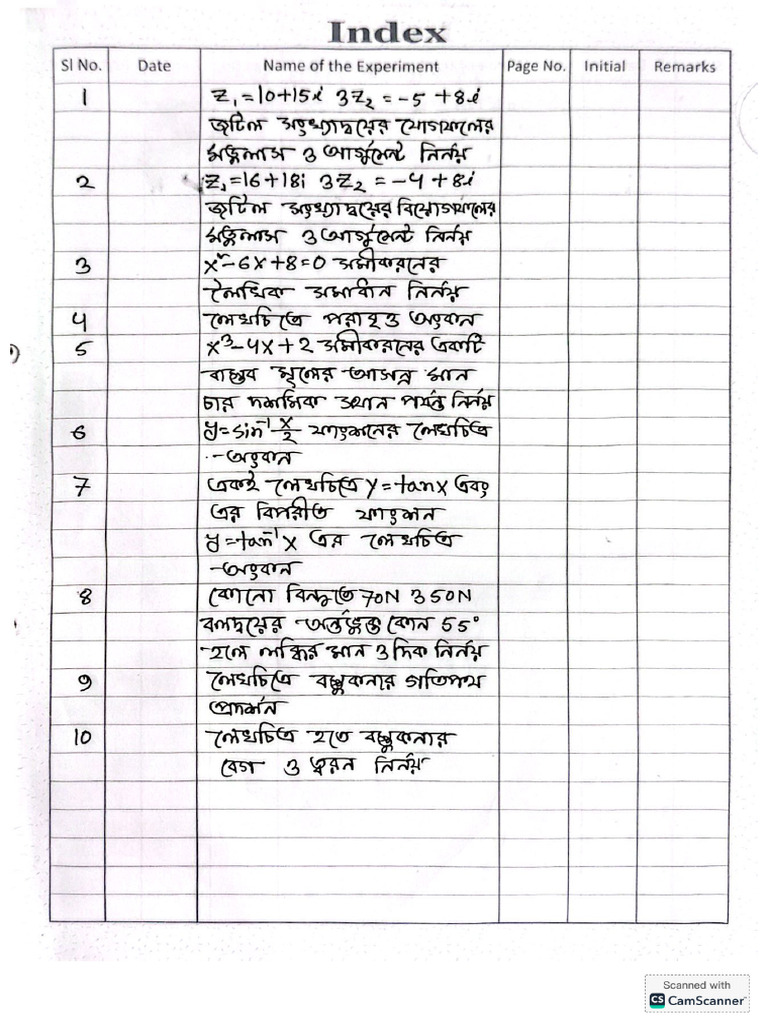 Index
Sl No. Date Name of the Experiment Page No. Initial Remarks
1 z₁=10+15i ও z₂ = -5 +8i
জটিল সংখ্যাদ্বয়ের যোগফলের
মডুলাস ও আর্গুমেন্ট নির্নয়
2 z₁=16+18i ও z₂ = -4 + 8i
জটিল সংখ্যাদ্বয়ের বিয়োগফলের
মডুলাস ও আর্গুমেন্ট নির্নয়
3 x²-6x+8=0 সমীকরনের
লৈখিক সমাধান নির্নয়
4 লেখচিত্রে পরাবৃত্ত অংকন
5 x³-4x+2 সমীকরনের একটি
বাস্তব মূলের আসন্ন মান
চার দশমিক স্থান পর্যন্ত নির্নয়
6 y=sin⁻¹ x/2 ফাংশনের লেখচিত্র
অংকন
7 একই লেখচিত্রে y=tanx এবং
এর বিপরীত ফাংশন
y=tan⁻¹x এর লেখচিত্র
অংকন
8 কোনো বিন্দুতে 70N ও 50N
বলদ্বয়ের অর্ন্তভুক্ত কোন 55°
হলে লব্ধির মান ও দিক নির্নয়
9 লেখচিত্রে বস্তুকনার গতিপথ
প্রদর্শন
10 লেখচিত্র হতে বস্তুকনার
বেগ ও ত্বরন নির্নয়
Scanned with
CS CamScanner